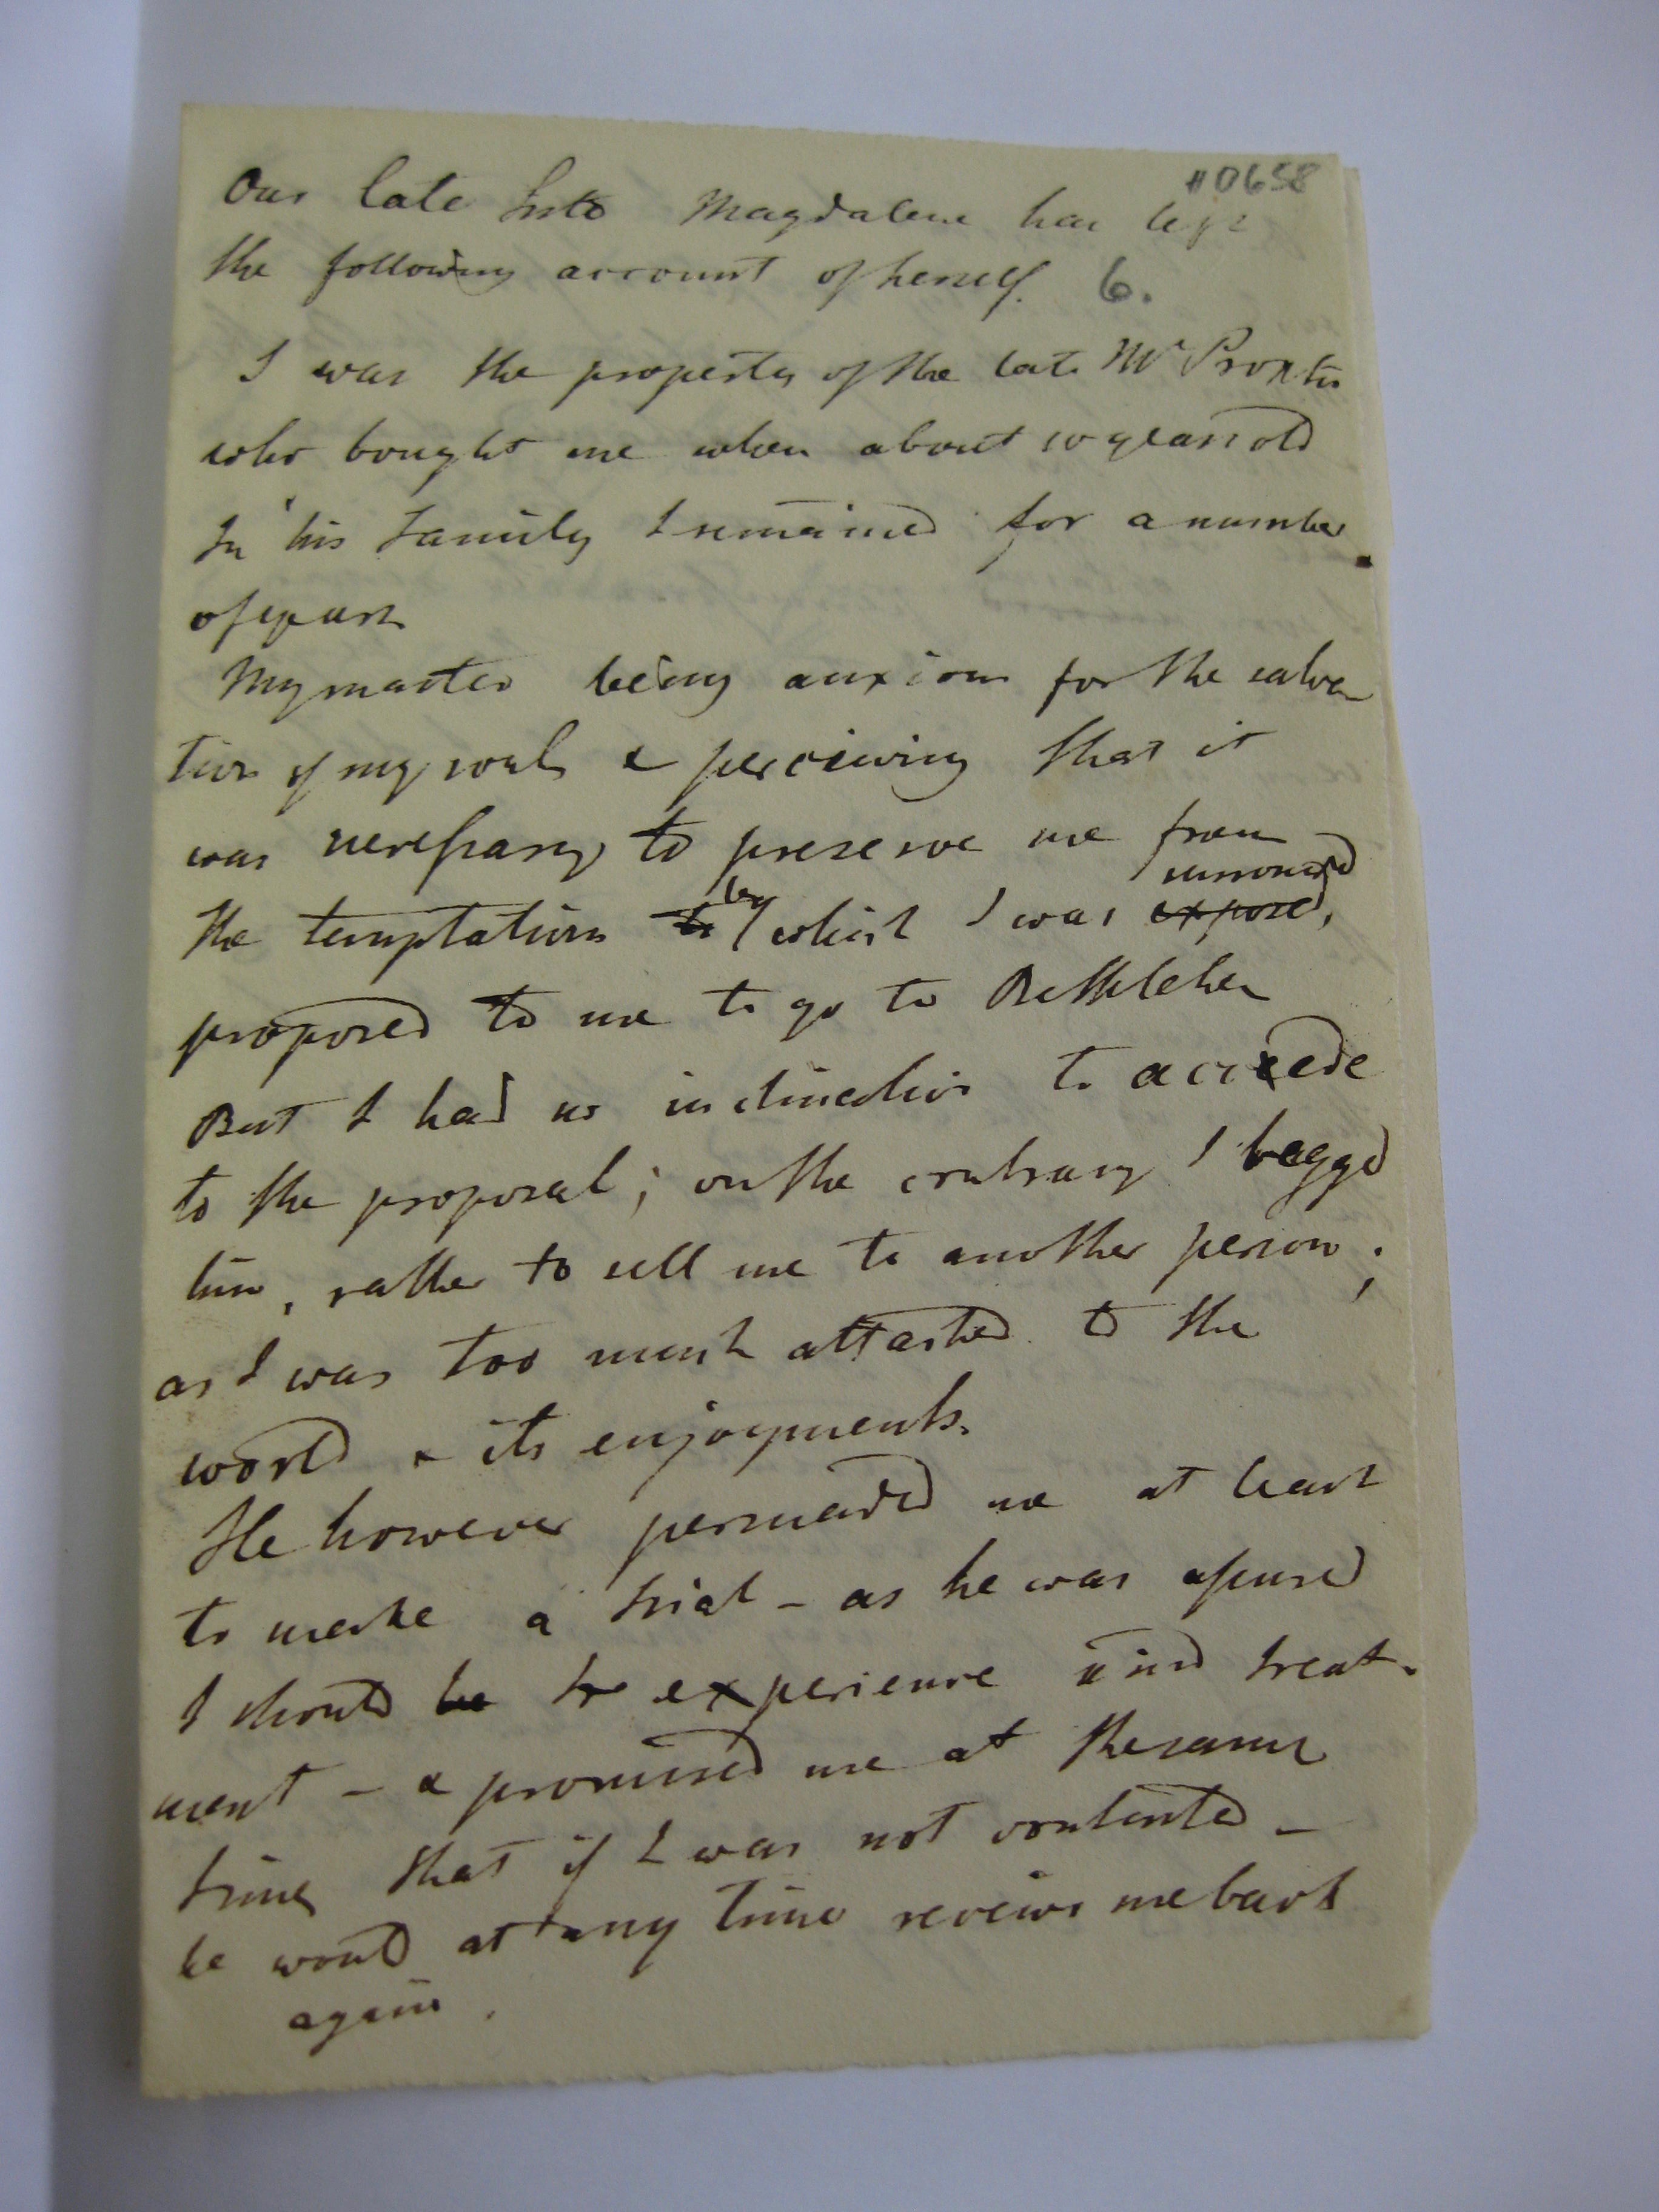 #0658
Our late Sister Magdalene has left
the following account of herself. 6.
I was the property of the late Mr
who bought me when about 10 years old
In his Family I remained for a number
of years
My master being anxious for the salva
tion of my soul & perceiving that it
was necessary to preserve me from
the temptations to by which I was exposed, surrounded
proposed to me to go to Bethlehem
But I had no inclination to accede
to the proposal; on the contrary I begged
him, rather to sell me to another person;
as I was too much attached to the
world & its enjoyments.
He however persuaded me at least
to make a trial - as he was assured
I should be to experience kind treat-
ment - & promised me at the same
time that if I was not contented -
he would at any time receive me back
again.